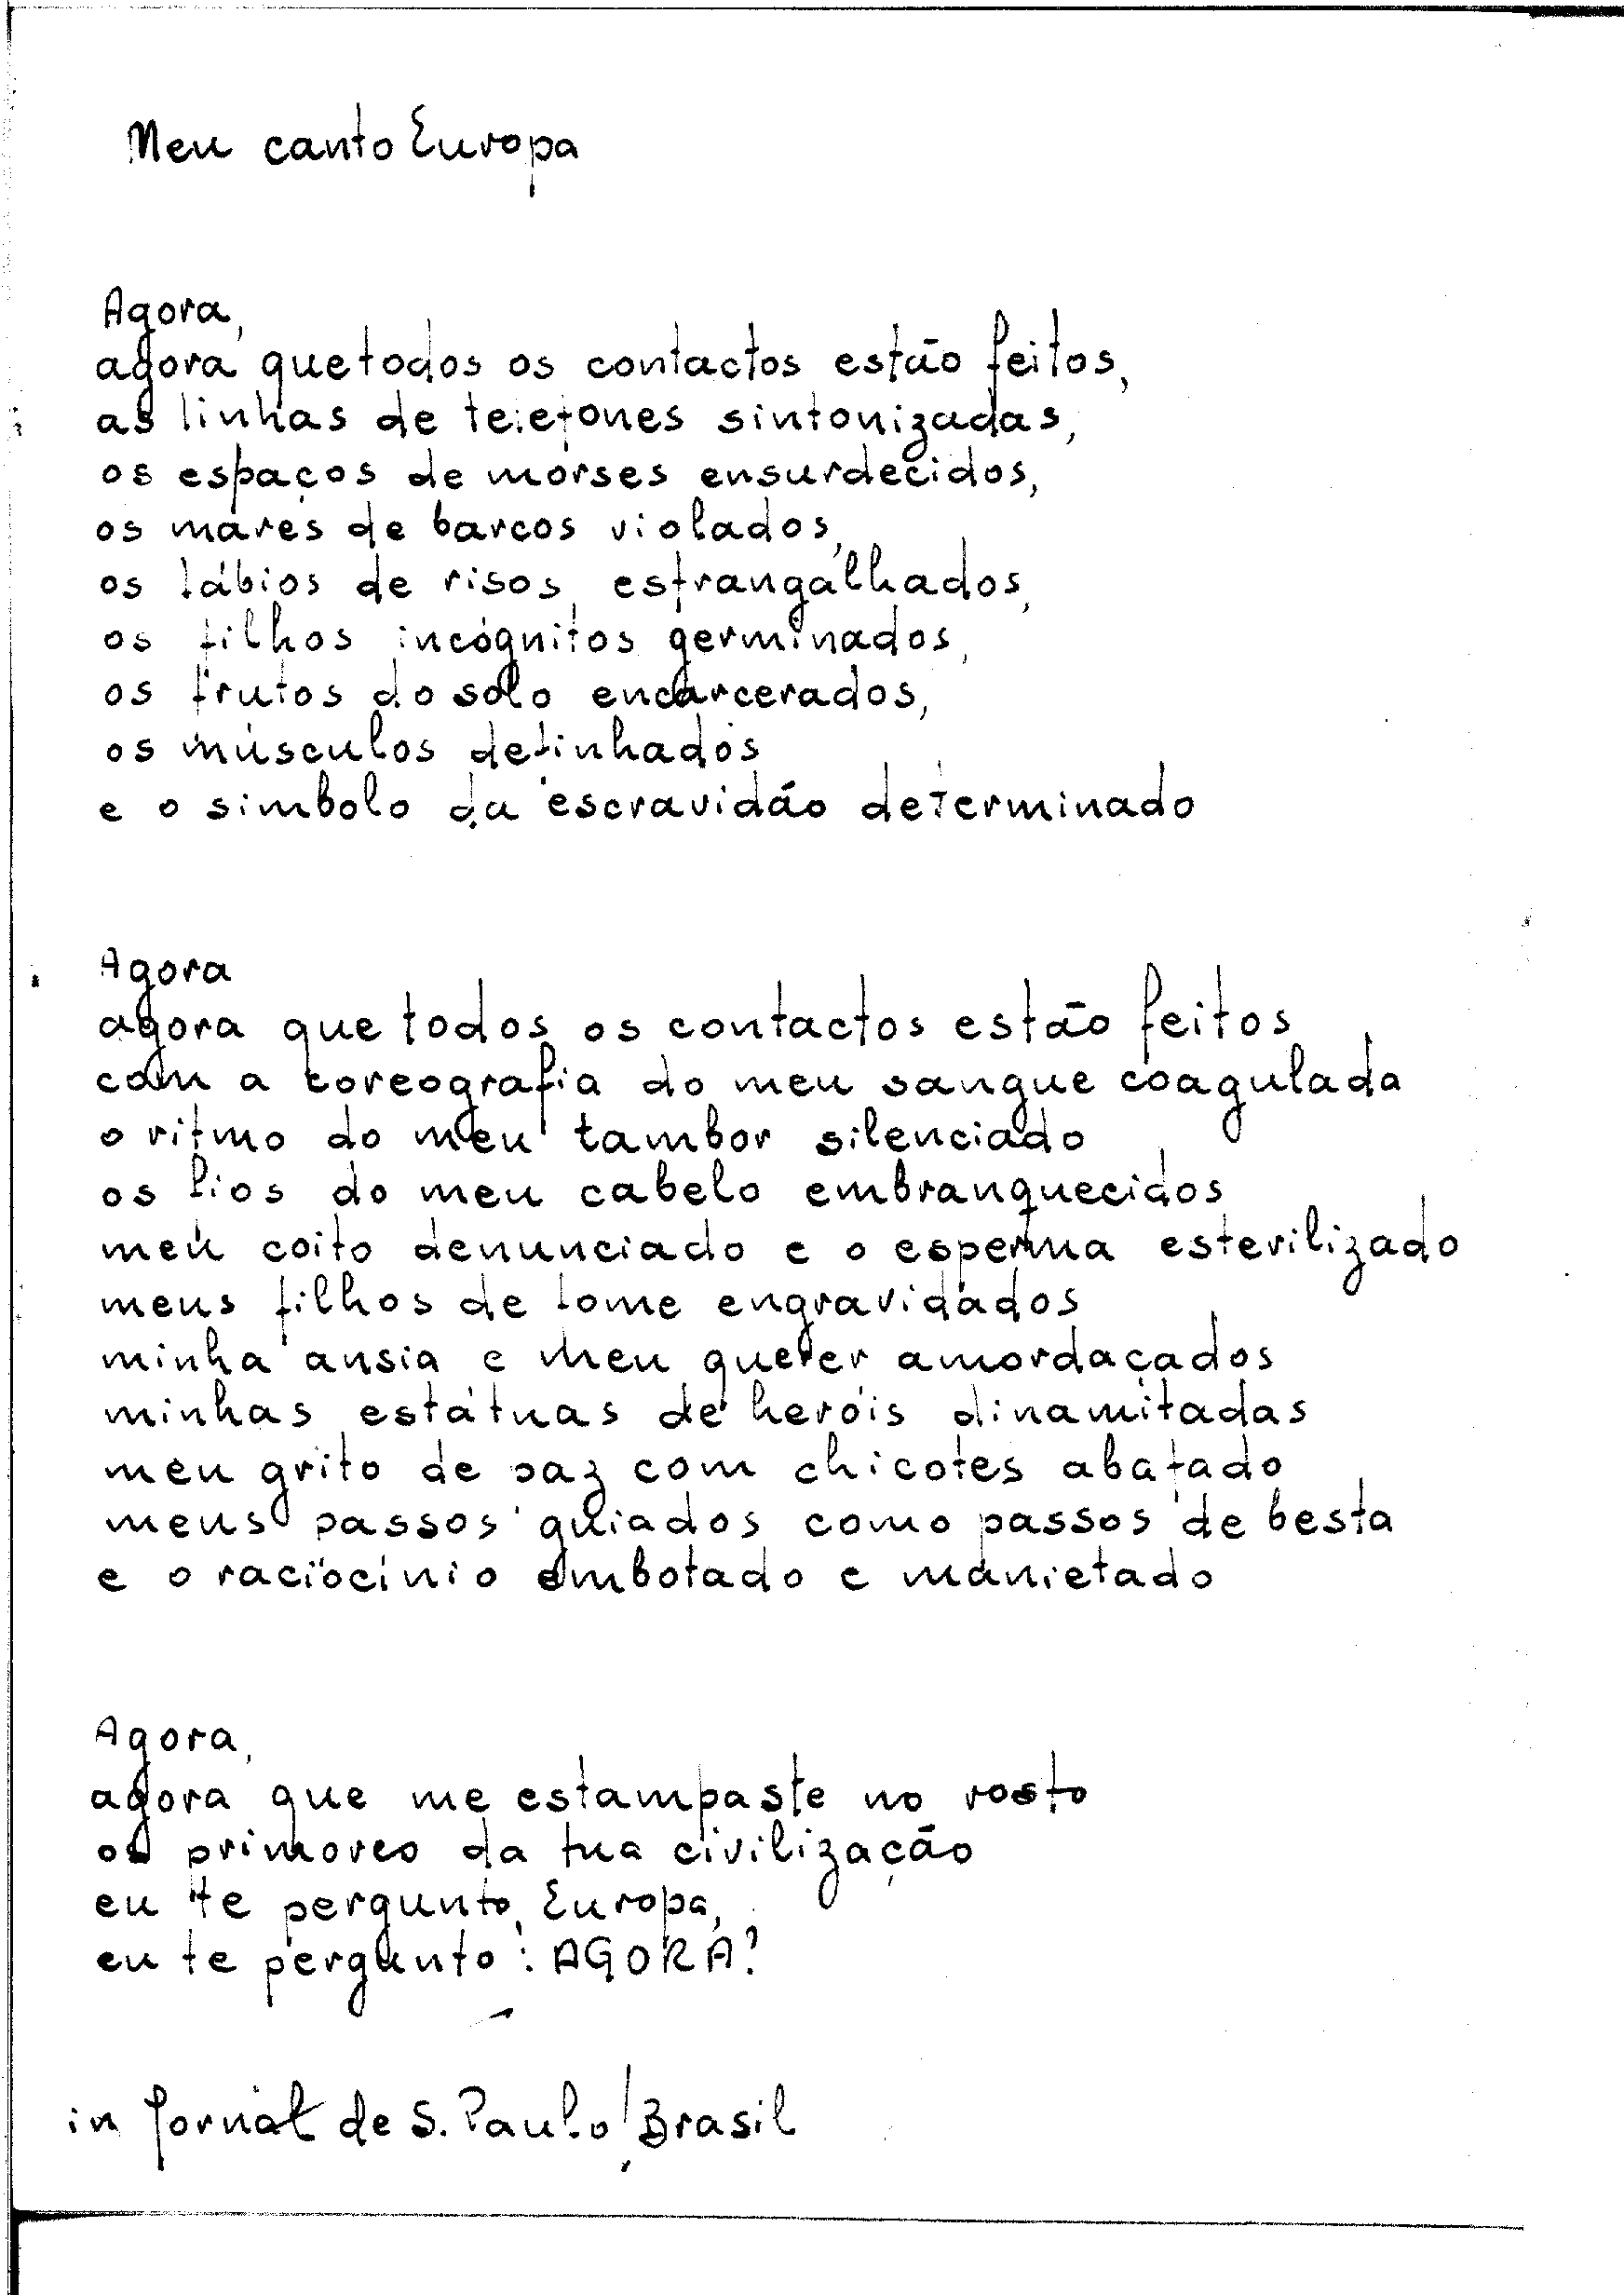 Meu canto Europa
Agora,
agora que todos os contactos estão feitos,
as linhas de telefones sintonizadas,
os espaços de morses ensurdecidos,
os mares de barcos violados,
os lábios de risos esfrangalhados,
os filhos incógnitos germinados,
os frutos do solo encarcerados,
os músculos definhados
e o simbolo da escravidão determinado
Agora
agora que todos os contactos estão feitos
com a coreografia do meu sangue coagulada
o ritmo do meu tambor silenciado
os fios do meu cabelo embranquecidos
meu coito denunciado e o esperma esterilizado
meus filhos de fome engravidados
minha ansia e meu querer amordaçados
minhas estátuas de heróis dinamitadas
meu grito de paz com chicotes abafado
meus passos guiados como passos de besta
e o raciocínio embotado e manietado
Agora,
agora que me estampaste no rosto
os primores da tua civilização
eu te pergunto, Europa,
eu te pergunto: AGORA?
in Jornal de S. Paulo/Brasil